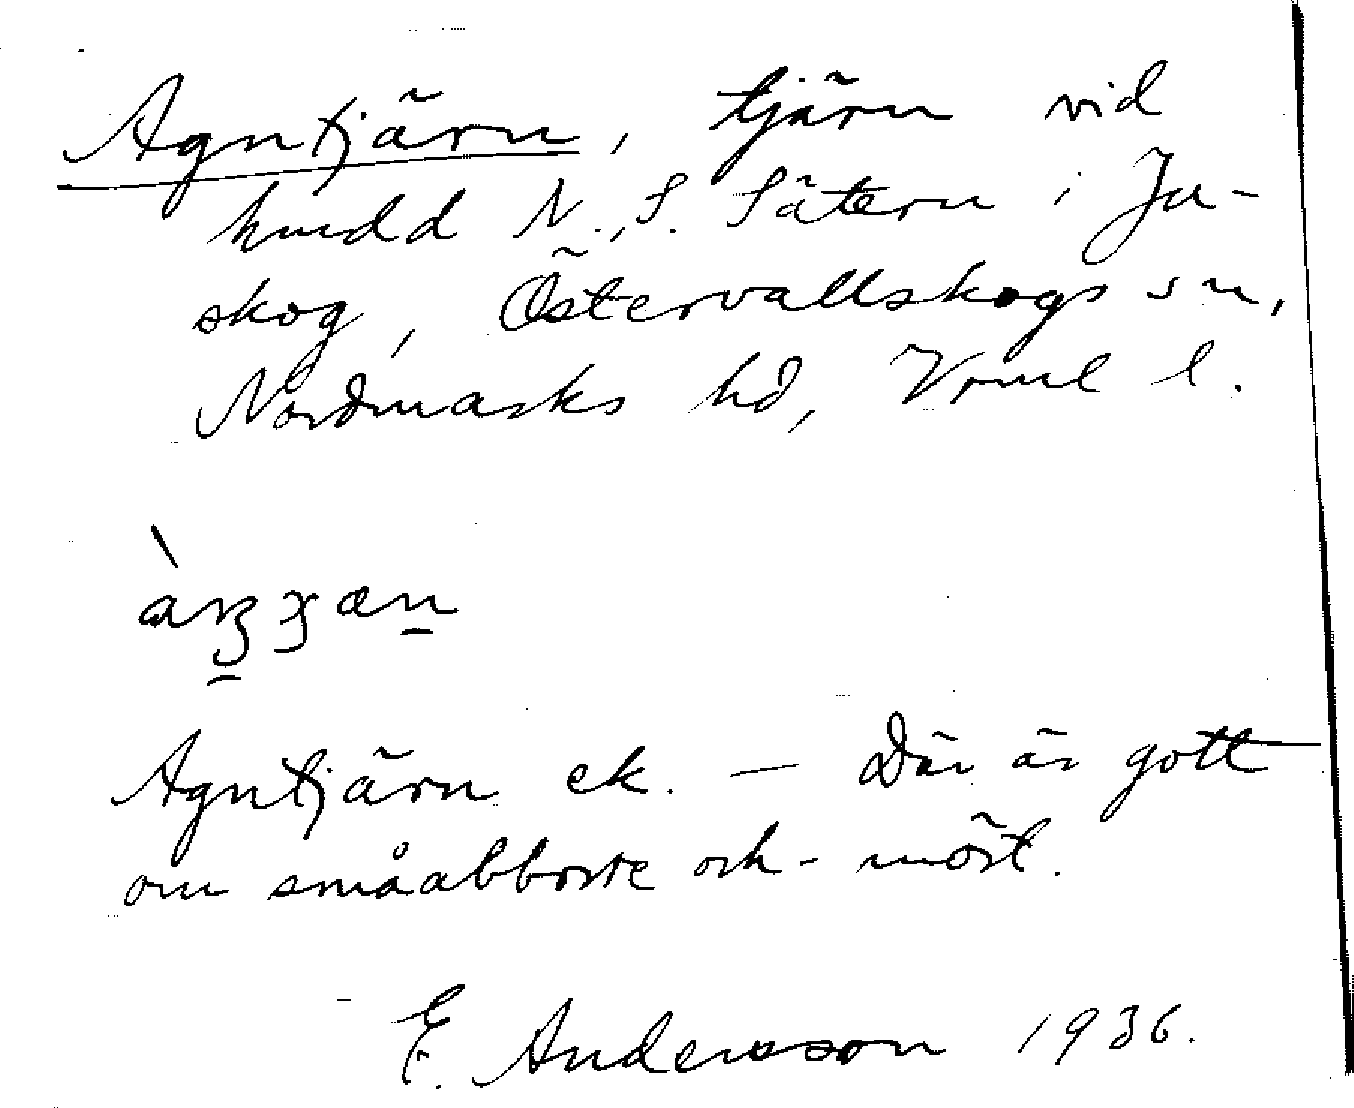 Agntjärn, tjärn vid
hmdd N., S. Sätern i Ju-
skog, Östervallskogs sn,
Nordmarks hd, Vrml l.
Agntjärn ek. — Där är gott
om småabborre och -mört.
E. Andersson 1936.